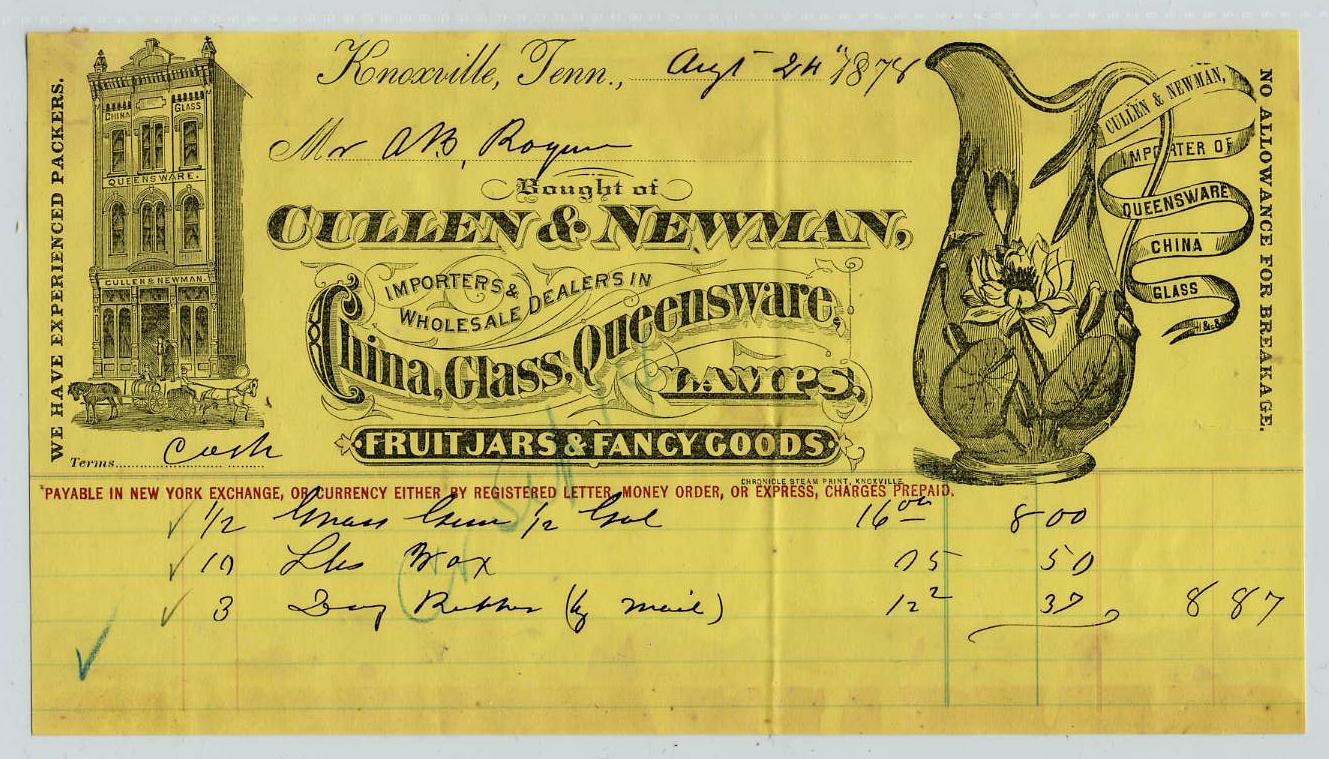 Knoxville, Tenn., Augt 24" 1878
Mr A B, Rogers
Bought of
CULLEN & NEWMAN,
IMPORTERS &
WHOLESALE DEALERS IN
China, Glass, Queensware,
LAMPS,
FRUIT JARS & FANCY GOODS
WE HAVE EXPERIENCED PACKERS.
CHINA GLASS
QUEENSWARE.
CULLEN & NEWMAN.
Terms Cash
CULLEN & NEWMAN,
IMPORTER OF
QUEENSWARE
CHINA
GLASS
NO ALLOWANCE FOR BREAKAGE.
CHRONICLE STEAM PRINT, KNOXVILLE
*PAYABLE IN NEW YORK EXCHANGE, OR CURRENCY EITHER BY REGISTERED LETTER, MONEY ORDER, OR EXPRESS, CHARGES PREPAID.
1/2 Gross 1/2 Gal 16 00 8 00
10 Lbs Wax 05 50
3 Doz Rubber (by mail) 12 2 37 8 87